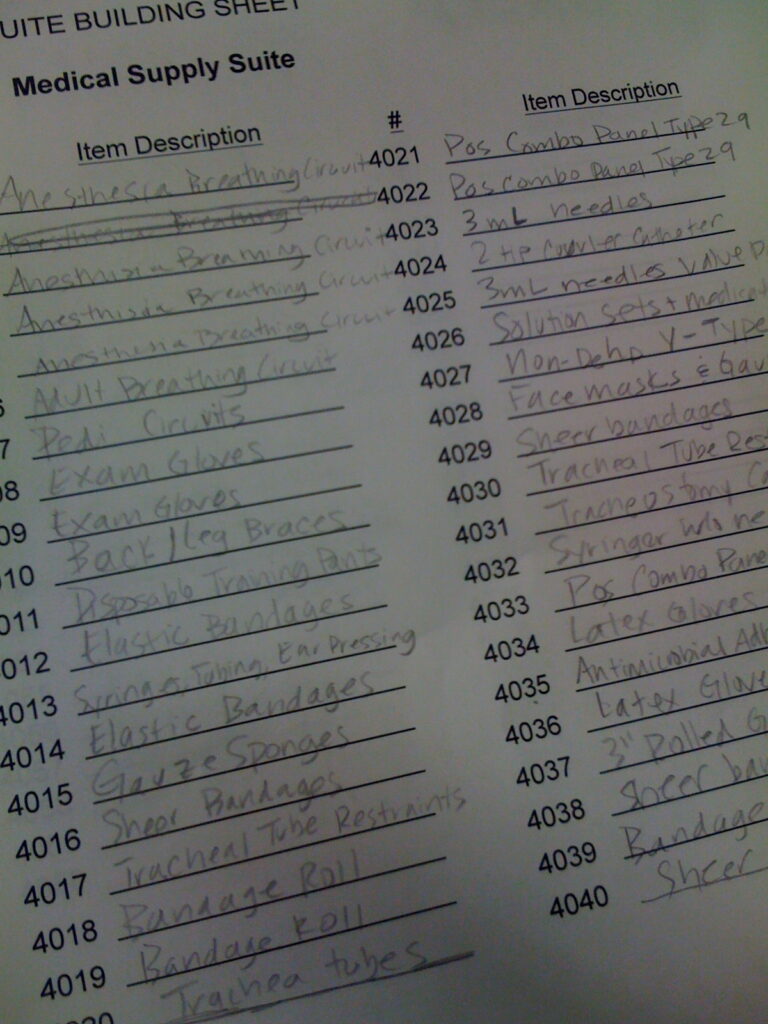 UITE BUILDING SHEET
Medical Supply Suite
Item Description
Anesthesia Breathing Circuit
Anesthesia Breathing Circuit
Anesthisia Breathing Circuit
Anesthisia Breathing Circuit
Anesthisia Breathing Circuit
Adult Breathing Circuit
7 Pedi Circuits
08 Exam Gloves
09 Exam Gloves
010 Back/Leg Braces
011 Disposable Training Pants
012 Elastic Bandages
4013 Syringes, Tubing, Ear Pressing
4014 Elastic Bandages
4015 Gauze Sponges
4016 Sheer Bandages
4017 Tracheal Tube Restraints
4018 Bandage Roll
4019 Bandage Roll
020 Trachea tubes
# Item Description
4021 Pos Combo Panel Type 29
4022 Pos combo Panel Type 29
4023 3mL needles
4024 2 tip Catheter
4025 3mL needles Value P
4026 Solution sets + medicat
4027 Non-Dehp Y-Type
4028 Face masks & Gau
4029 Sheer bandages
4030 Tracheal Tube Res
4031 Tracheostomy Ca
4032 Syringer w/o ne
4033 Pos Combo Pane
4034 Latex Gloves
4035 Antimicrobial Adh
4036 Latex Glove
4037 3" Rolled G
4038 Sheer ban
4039 Bandage
4040 Sheer